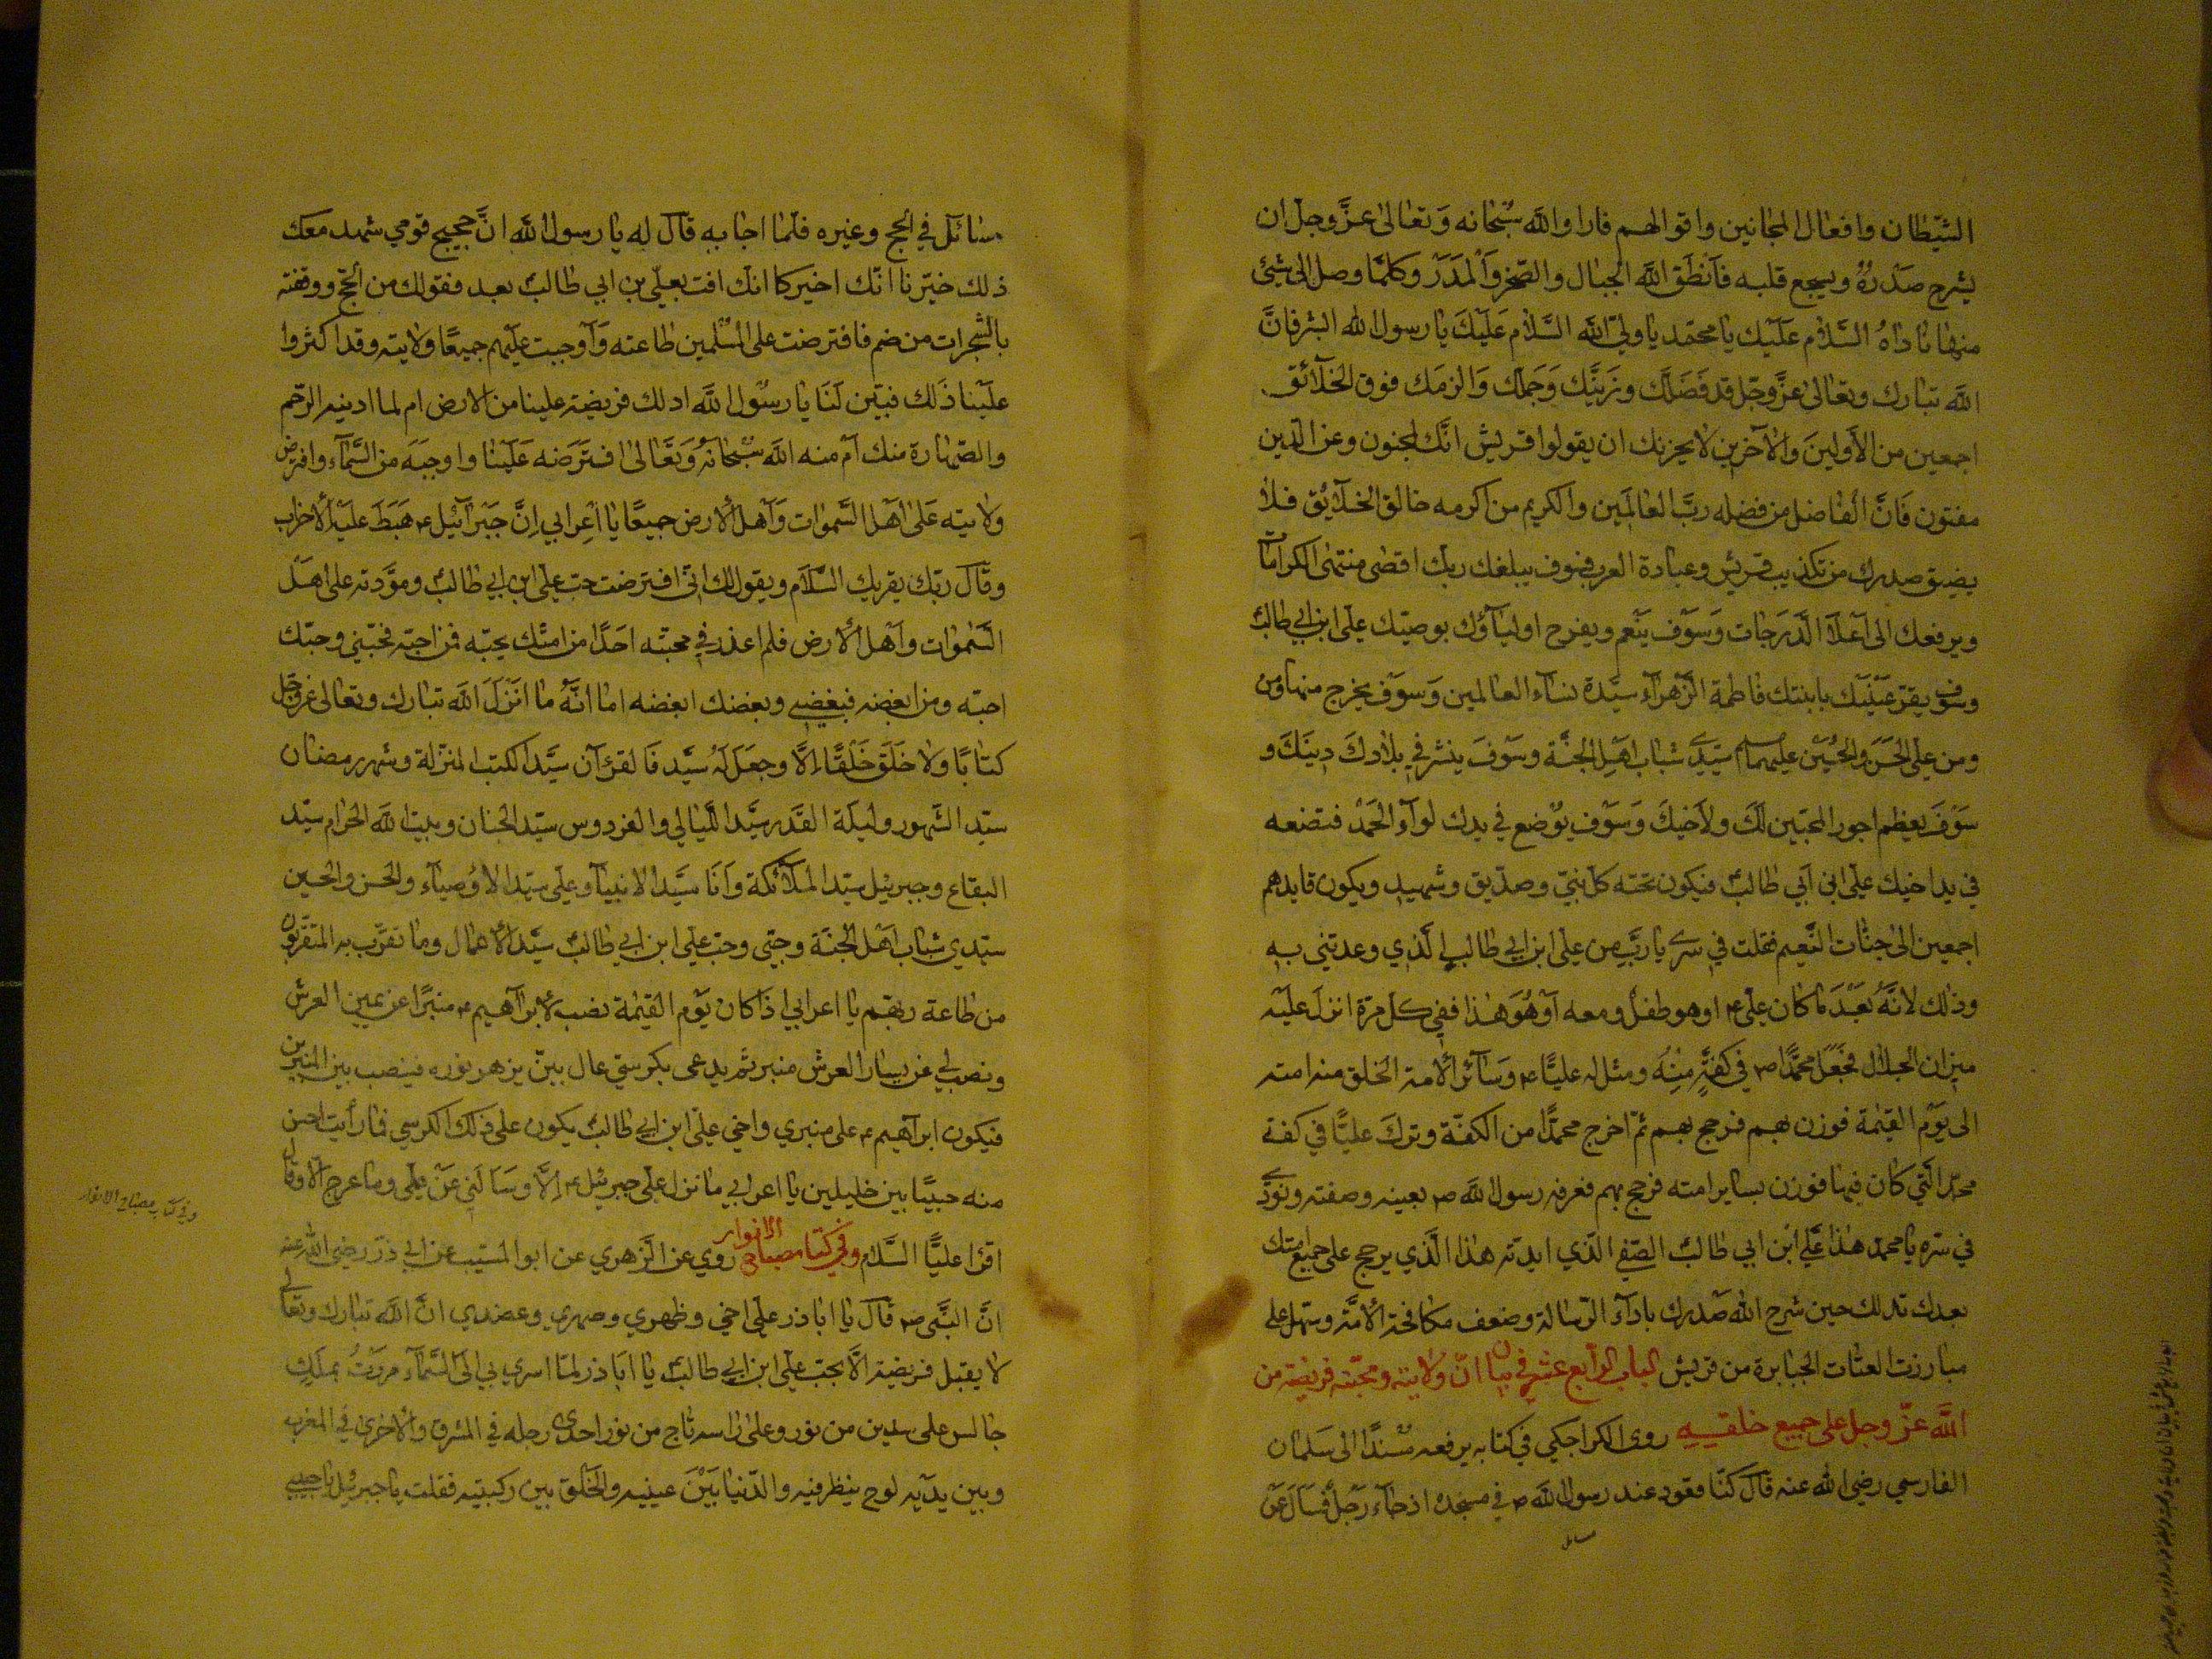 الشيطان وافعال المجانين واقوالهم فاراد الله سبحانه وتعالى عز وجل ان
يشرح صدره ويسجع قلبه فانطق الله الجبال والصخر والمدر وكلما وصل الى شيئ
منها ناداه السلام عليك يا محمد يا ولي الله السلام عليك يا رسول الله ابشر فان
الله تبارك وتعالى عز وجل قد فضلك وزينك وجملك والزمك فوق الخلائق
اجمعين من الاولين والآخرين لا يحزنك ان يقولوا قريش انك لمجنون وعن الدين
مفتون فان الفاضل من فضله رب العالمين والكريم من اكرمه خالق الخلايق فلا
يضيق صدرك من تكذيب قريش وعبادة العرب فسوف يبلغك ربك اقصى منتهى الكرامات
ويرفعك الى اعلا الدرجات وسوف ينعم ويفرح اولياؤك بوصيك علي ابن ابي طالب
وسوف يقر عينيك بابنتك فاطمة الزهراء سيدة نساء العالمين وسوف يخرج منها ومن
ومن علي الحسن والحسين عليهما سلم سيدي شباب اهل الجنة وسوف ينشر في بلادك دينك و
سوف يعظم اجور المحبين لك ولاخيك وسوف يوضع في يدك لواء الحمد فتضعه
في يد اخيك علي ابن ابي طالب فيكون تحته كل نبي وصديق وشهيد ويكون قايدهم
اجمعين الى جنات النعيم فقلت في سري يا رب من علي ابن ابي طالب الذي وعدتني به
وذلك لانه بعد ما كان علي ع او هو طفل ومعه او هو هذا ففي كل مرة انزل عليه
ميزان الجلال فجعل محمدا ص في كفة منه ومثل له عليا ع وسائر الامة الخلق منه امته
الى يوم القيمة فوزن بهم فرجح بهم ثم اخرج محمدا من الكفة وترك عليا في كفة
محمد التي كان فيها فوزن بساير امته فرجح بهم فعرفه رسول الله ص بعينه وصفته ونودي
في سره يا محمد هذا علي ابن ابي طالب الصفي الذي ايدته هذا الذي يرجح على جميع امتك
بعدك تد لك حين شرح الله صدرك باداء الرسالة وضعف مكافحة الامة وسهل على
مبارزت العتات الجبابرة من قريش الباب الرابع عشر في بيان ان ولايته ومحبته فريضة من
الله عز وجل على جميع خلقه روى الكراجكي في كتابه يرفعه مسندا الى سلمان
الفارسي رضي الله عنه قال كنا قعود عند رسول الله ص في مسجده اذ جاء رجل فسال عن
مسائل
مسائل في الحج وغيره فلما اجابه قال له يا رسول الله ان حجيج قومي شهد معك
ذلك خبرنا انك اخبركا انك اقت بعلي بن ابي طالب بعد قفولك من الحج ووقفته
بالشجرات من ضم فافترضت على المسلمين طاعته واوجبت عليهم جميعا ولايته وقد اكثروا
علينا ذلك فبين لنا يا رسول الله ادلك فريضة علينا من الارض ام لما ادنيه الرحم
والصهارة منك ام منه الله سبحانه وتعالى افترضه علينا واوجبه من السماء وافترض
ولايته على اهل السموات واهل الارض جميعا يا اعرابي ان جبرائيل ع هبط علي الاخراب
وقال ربك يقريك السلام ويقول لك اني افترضت حب علي ابن ابي طالب ومودته على اهل
السموات واهل الارض فلم اعذر في محبته احدا من امتك بحبه فمن احبه فحبني وحبك
احبه ومن ابغضه فبغضي وبغضك ابغضه اما انه ما انزل الله تبارك وتعالى عز وجل
كتابا ولا خلق خلقا الا وجعل له سيد فالقرآن سيد الكتب المنزلة وشهر رمضان
سيد الشهور وليلة القدر سيد الليالي والفردوس سيد الجنان وبيت الله الحرام سيد
البقاع وجبريل سيد الملائكة وانا سيد الانبياء وعلي سيد الاوصياء والحسن والحسين
سيدي شباب اهل الجنة وحبي وحب علي ابن ابي طالب سيد الاعمال وما تقرب به المتقربون
من طاعة ربهم يا اعرابي اذا كان يوم القيمة نصب لابراهيم ع منبرا عن يمين العرش
ونصب لي عن يسار العرش منبر ثم يدعى بكرسي عال بين يزهر نوره فينصب بين المنبرين
فيكون ابراهيم ع على منبري واخي علي ابن ابي طالب يكون على ذلك الكرسي فما رأيت احسن
منه حبيبا بين خليلين يا اعرابي ما نزل علي جبريل ع الا وسالني عن علي وما عرج الا وقال
اقرا عليا السلام وفي كتاب مصباح الانوار روي عن الزهري عن ابو المسيب عن ابي ذر رضي الله عنه
ان النبي ص قال يا ابا ذر علي اخي وظهري وصهري وعضدي ان الله تبارك وتعالى
لا يقبل فريضة الا بحب علي ابن ابي طالب يا ابا ذر لما اسري بي الى السماء مررت بملك
جالس على سرير من نور وعلى راسه تاج من نور احدى رجله في المشرق والاخرى في المغرب
وبين يديه لوح ينظر فيه والدنيا بين عينيه والخلق بين ركبتيه فقلت يا جبريل يا حبيبي
وفي كتاب مصباح الانوار